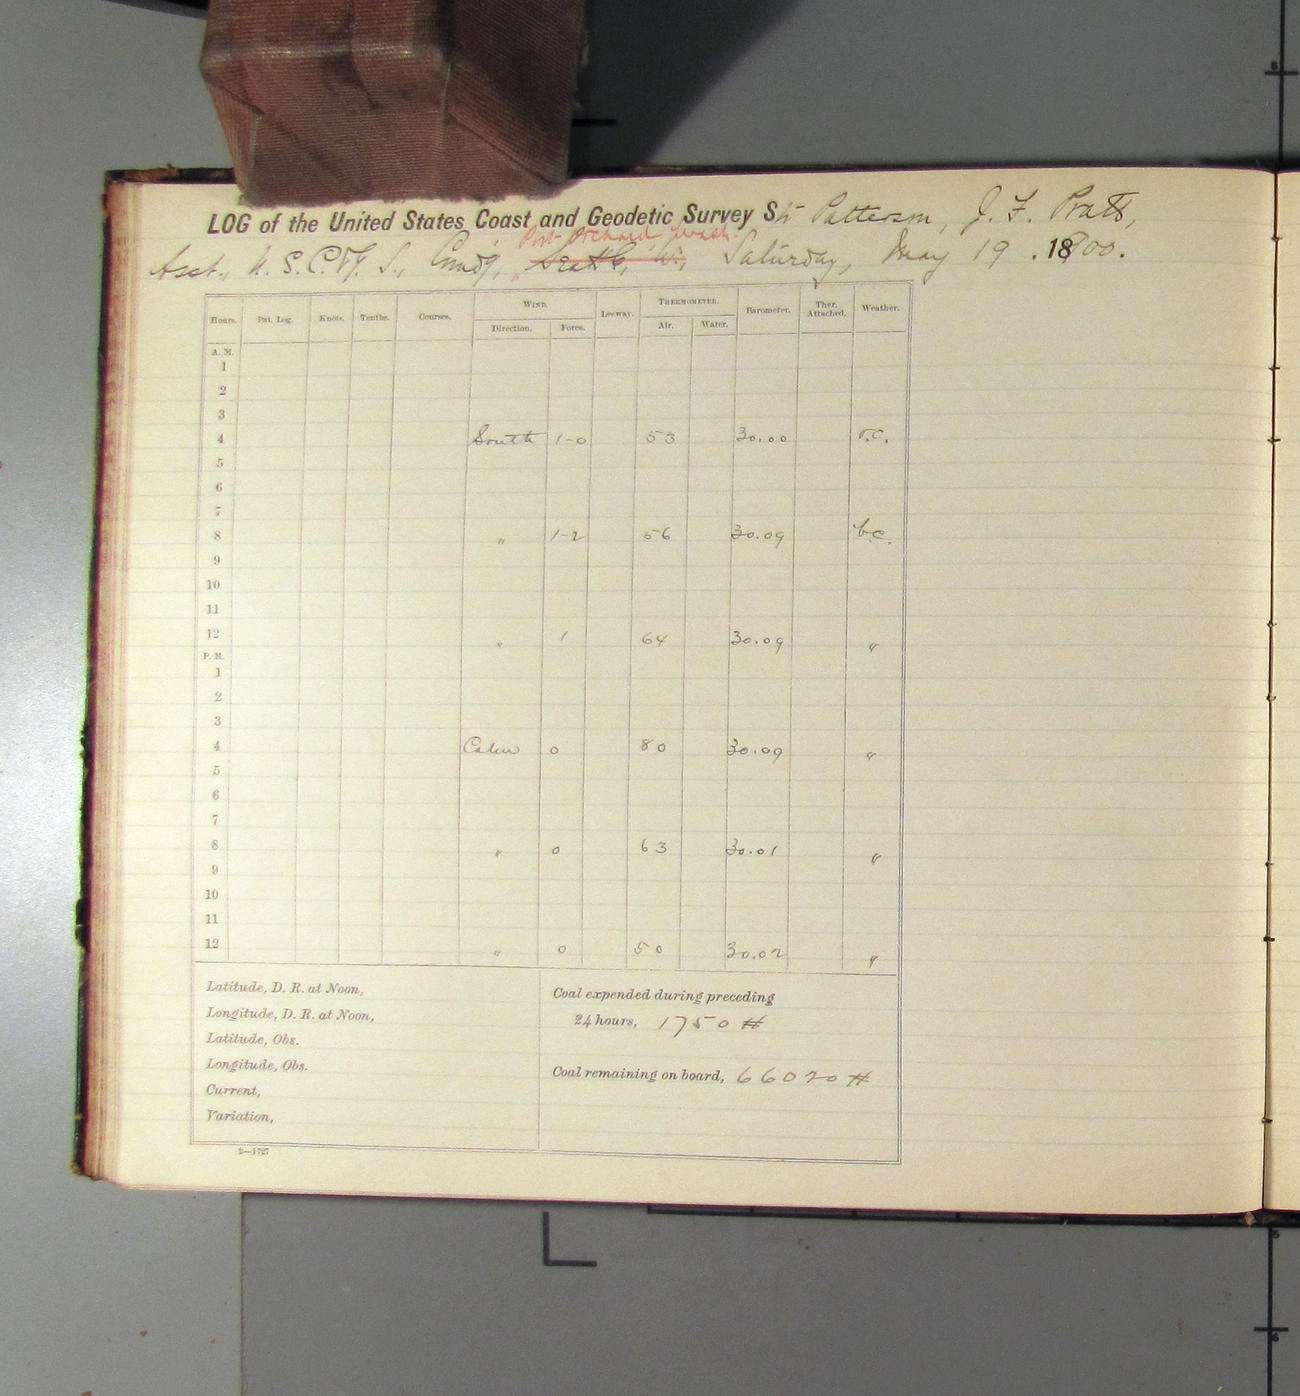 LOG of the United States Coast and Geodetic Survey Str Patterson, J. F. Pratt,
Port Orchard, Wash.
Asst., U. S. C. & G. S., Comdg, Seattle, W., Saturday, May 19 . 1900.
Hours. Pat. Log. Knots. Tenths. Courses. WIND. Leeway. THERMOMETER. Barometer. Ther. Attached. Weather.
Direction. Force. Air. Water.
A. M.
1
2
3
4 South 1-0 53 30.00 r.c.
5
6
7
8 " 1-2 56 30.09 b.c.
9
10
11
12 " 1 64 30.09 "
P. M.
1
2
3
4 Calm 0 80 30.09 "
5
6
7
8 " 0 63 30.01 "
9
10
11
12 " 0 50 30.02 "
Latitude, D. R. at Noon,
Longitude, D. R. at Noon,
Latitude, Obs.
Longitude, Obs.
Current,
Variation,
Coal expended during preceding
24 hours, 1750 #
Coal remaining on board, 66020 #
2—1727